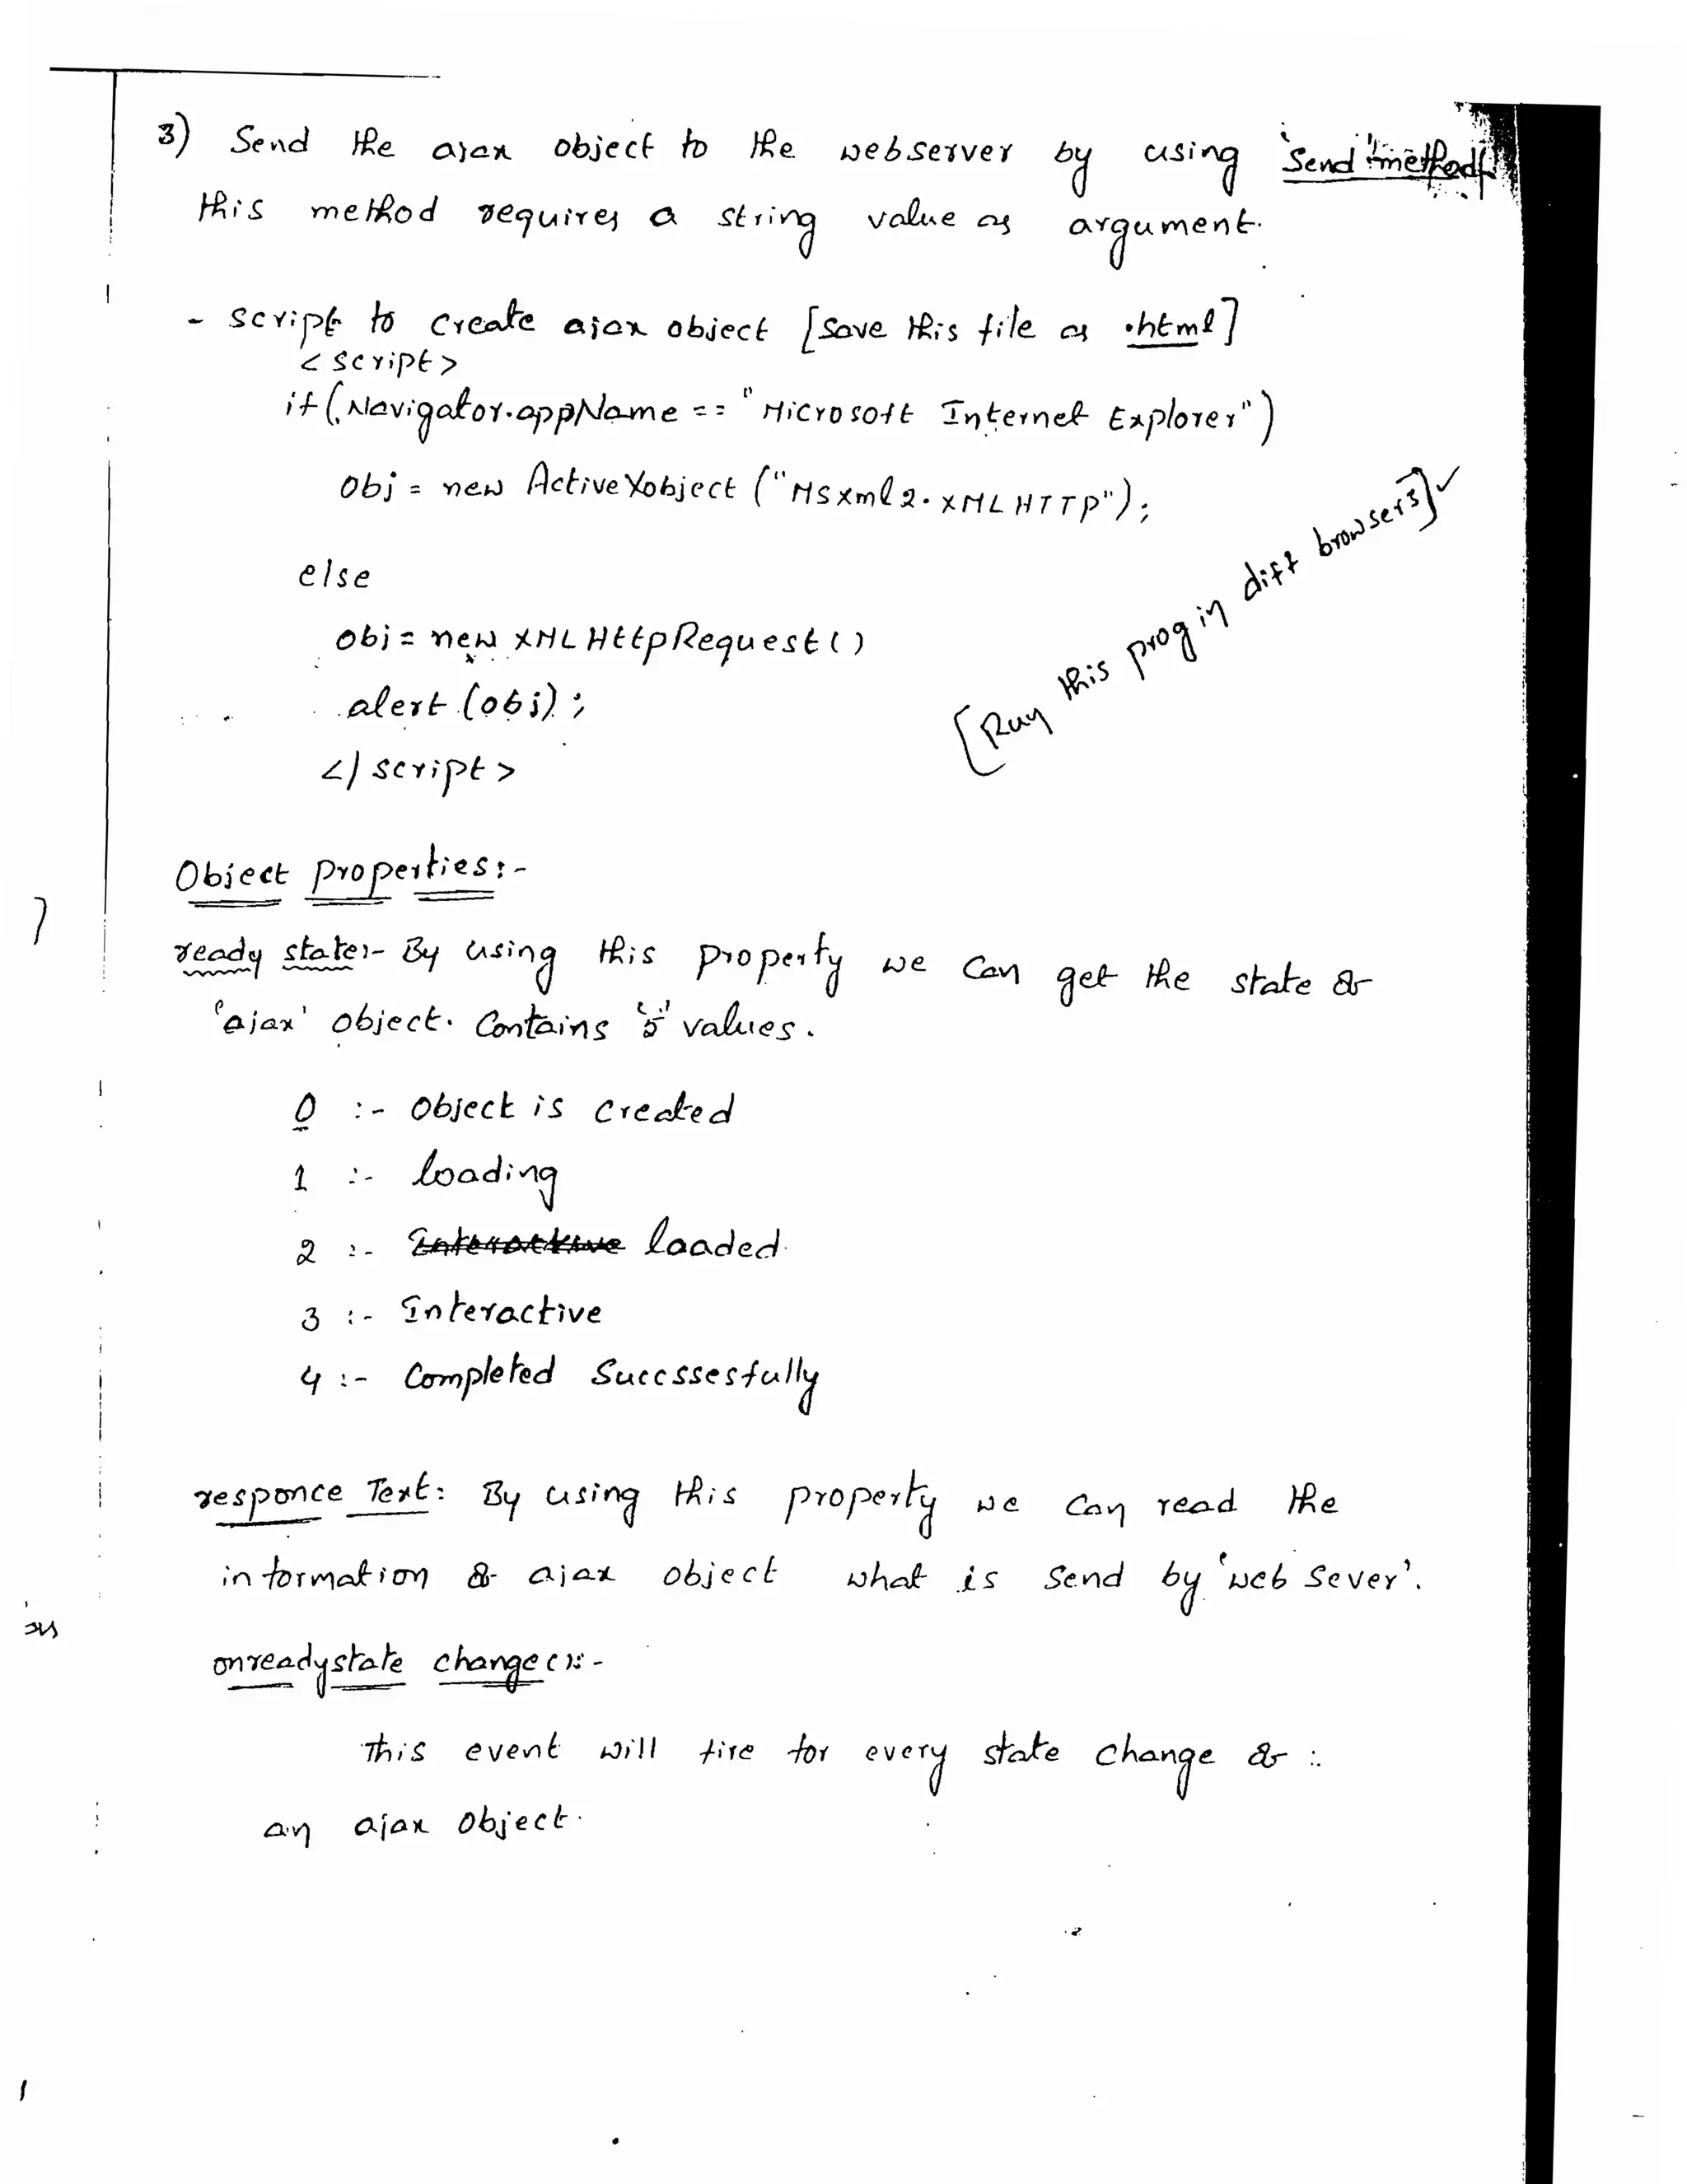 3) Send the ajax object to the webserver by using 'Send' method
this method requires a string value as argument.
- script to create ajax object [Save this file as .html]
< script >
if (Navigator.appName == "Microsoft Internet Explorer")
Obj = new ActiveXobject ("MSxml2.XMLHTTP");
else
obj = new XMLHttpRequest ()
alert (obj);
</ script >
[Run this prog in diff browsers] ✓
Object properties:-
ready state:- By using this property we can get the state of
'ajax' object. Contains '5' values.
0 :- object is created
1 :- loading
2 :- Interactive loaded
3 :- Interactive
4 :- Completed Succssesfully
responce Text: By using this property we can read the
information of ajax object what is Send by 'web Sever'.
onreadystate change():-
This event will fire for every state change of
an ajax object.